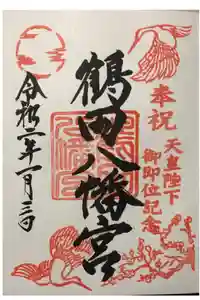 奉祝
天皇陛下
御即位記念
鶴田八幡宮
令和二年一月三日